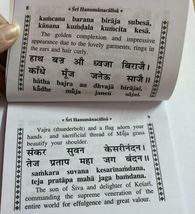 * Śrī Hanumānacālīsā *
kaṁcana barana birāja subesā,
kānana kuṁḍala kuṁcita kesā.
The golden complexion and impressive
appearance due to the lovely garments, rings in
the ears and hair curly.
हाथ बज्र औ ध्वजा बिराजै।
काँधे मूँज जनेऊ साजै।।
hātha bajra au dhvajā birājai,
kā̃dhe mū̃ja janeū sājai.
* Śrī Hanumānacālīsā *
Vajra (thunderbolt) and a flag adorn your
hands and sacrificial thread of Mūja grass
beautify your shoulder.
संकर सुवन केसरीनंदन।
तेज प्रताप महा जग बंदन।।
saṁkara suvana kesarīnaṁdana,
teja pratāpa mahā jaga baṁdana.
The son of Śiva and delight of Kesarī,
commanding the supreme veneration of the
entire world for effulgence and great valour.